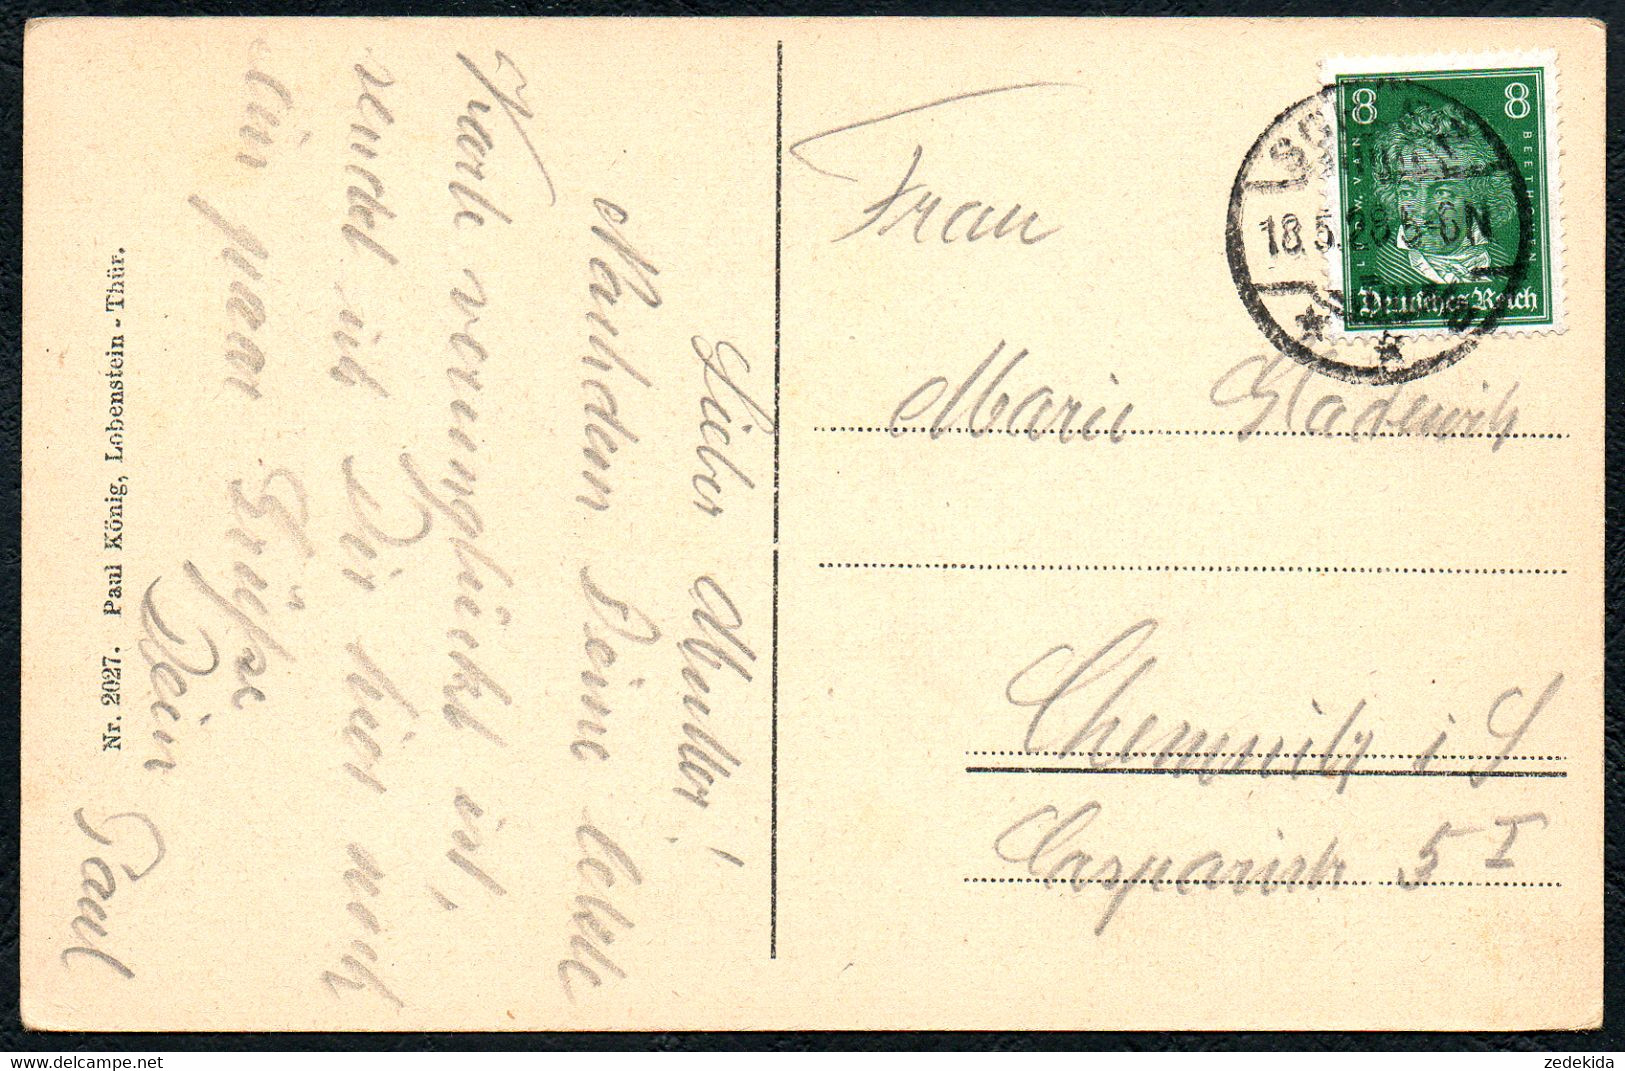 Liebe Mutter!
Nachdem Deine letzte
Karte verunglückt ist,
sendet ich Dir hier noch
ein paar Grüße
Dein
Paul
Nr. 2027. Paul König, Lobenstein - Thür.
Frau
Marie Gladewitz
Chemnitz i S
Casparistr 5 I
8 8
LUDW. VAN BEETHOVEN
Deutsches Reich
18.5.28 5-6N
zedekida